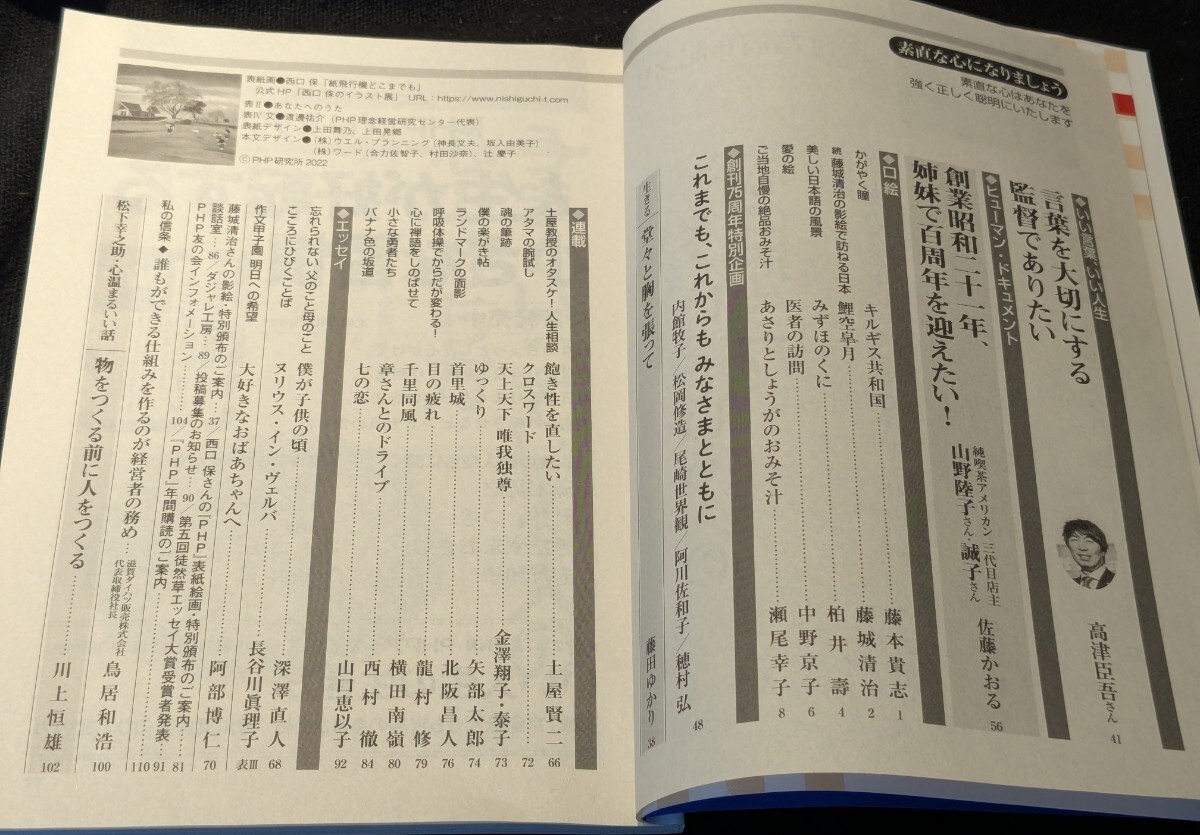 素直な心になりましょう
素直な心はあなたを
強く正しく聡明にいたします
◆いい言葉、いい人生
言葉を大切にする
監督でありたい
高津臣吾さん 41
◆ヒューマン・ドキュメント
創業昭和二十一年、
姉妹で百周年を迎えたい!
純喫茶アメリカン 三代目店主
山野陸子さん・誠子さん
佐藤かおる 56
◆口絵
かがやく瞳 キルギス共和国 藤本貴志 1
続 藤城清治の影絵で訪ねる日本 鯉空皐月 藤城清治 2
美しい日本語の風景 みずほのくに 柏井壽 4
愛の絵 医者の訪問 中野京子 6
ご当地自慢の絶品おみそ汁 あさりとしょうがのおみそ汁 瀬尾幸子 8
◆創刊75周年特別企画
これまでも、これからも みなさまとともに
内館牧子/松岡修造/尾崎世界観/阿川佐和子/穂村弘 48
生きる 堂々と胸を張って 藤田ゆかり 38
表紙画●西口 保「紙飛行機どこまでも」
公式HP「西口 保のイラスト展」 URL:https://www.nishiguchi-t.com
表Ⅱ●あなたへのうた
表Ⅳ 文●渡邊祐介(PHP理念経営研究センター代表)
表紙デザイン●上田舞乃、上田晃郷
本文デザイン●(株)ウエル・プランニング(神長文夫、坂入由美子)
(株)ワード(合力佐智子、村田沙奈)、辻 慶子
©PHP研究所 2022
◆連載
土屋教授のオタスケ!人生相談 飽き性を直したい 土屋賢二 66
アタマの腕試し クロスワード 72
魂の筆跡 天上天下 唯我独尊 金澤翔子・泰子 73
僕の楽がき帖 ゆっくり 矢部太郎 74
ランドマークの面影 首里城 北阪昌人 76
呼吸体操でからだが変わる! 目の疲れ 龍村修 79
心に禅語をしのばせて 千里同風 横田南嶺 80
小さな勇者たち 章さんとのドライブ 西村徹 84
バナナ色の坂道 七の恋 山口恵以子 92
◆エッセイ
忘れられない 父のこと母のこと 僕が子供の頃 深澤直人 68
こころにひびくことば ヌリウス・イン・ヴェルバ 長谷川眞理子 表Ⅲ
作文甲子園 明日への希望 大好きなおばあちゃんへ 阿部博仁 70
藤城清治さんの影絵・特別頒布のご案内…37/西口 保さんの『PHP』表紙絵画・特別頒布のご案内 81
談話室…86/ダジャレ工房…89/投稿募集のお知らせ…90/第五回徒然草エッセイ大賞受賞者発表 91
PHP友の会インフォメーション…104/『PHP』年間購読のご案内 110
私の信条◆誰もができる仕組みを作るのが経営者の務め 滋賀ダイハツ販売株式会社 代表取締役社長 鳥居和浩 100
松下幸之助・心温まるいい話 物をつくる前に人をつくる 川上恒雄 102